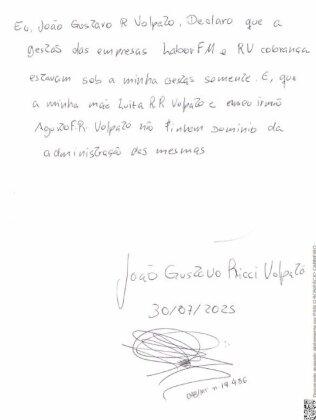 Eu, João Gustavo R Volpato, Declaro que a
gestão das empresas LaborFM e RV cobrança
estavam sob a minha gestão somente. E, que
a minha mãe Luiza R.R Volpato e meu irmão
Augusto F.R. Volpato não tinham Dominio da
administração das mesmas
João Gustavo Ricci Volpato
30/07/2025
OAB/MT n 19.486